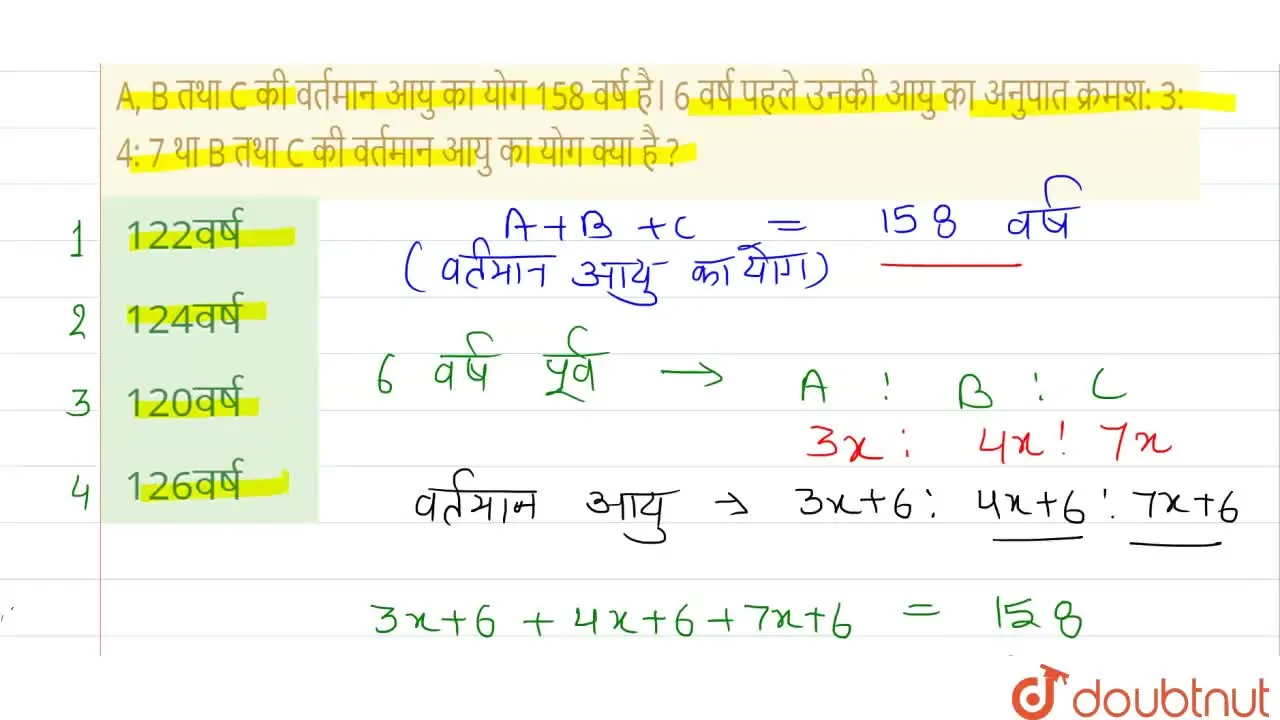 A, B तथा C की वर्तमान आयु का योग 158 वर्ष है। 6 वर्ष पहले उनकी आयु का अनुपात क्रमश: 3:
4: 7 था B तथा C की वर्तमान आयु का योग क्या है ?
1 122वर्ष
A + B + C = 158 वर्ष
(वर्तमान आयु का योग)
2 124वर्ष
6 वर्ष पूर्व → A : B : C
3 120वर्ष
3x : 4x : 7x
4 126वर्ष
वर्तमान आयु → 3x+6 : 4x+6 : 7x+6
3x+6 + 4x+6 + 7x+6 = 158
doubtnut